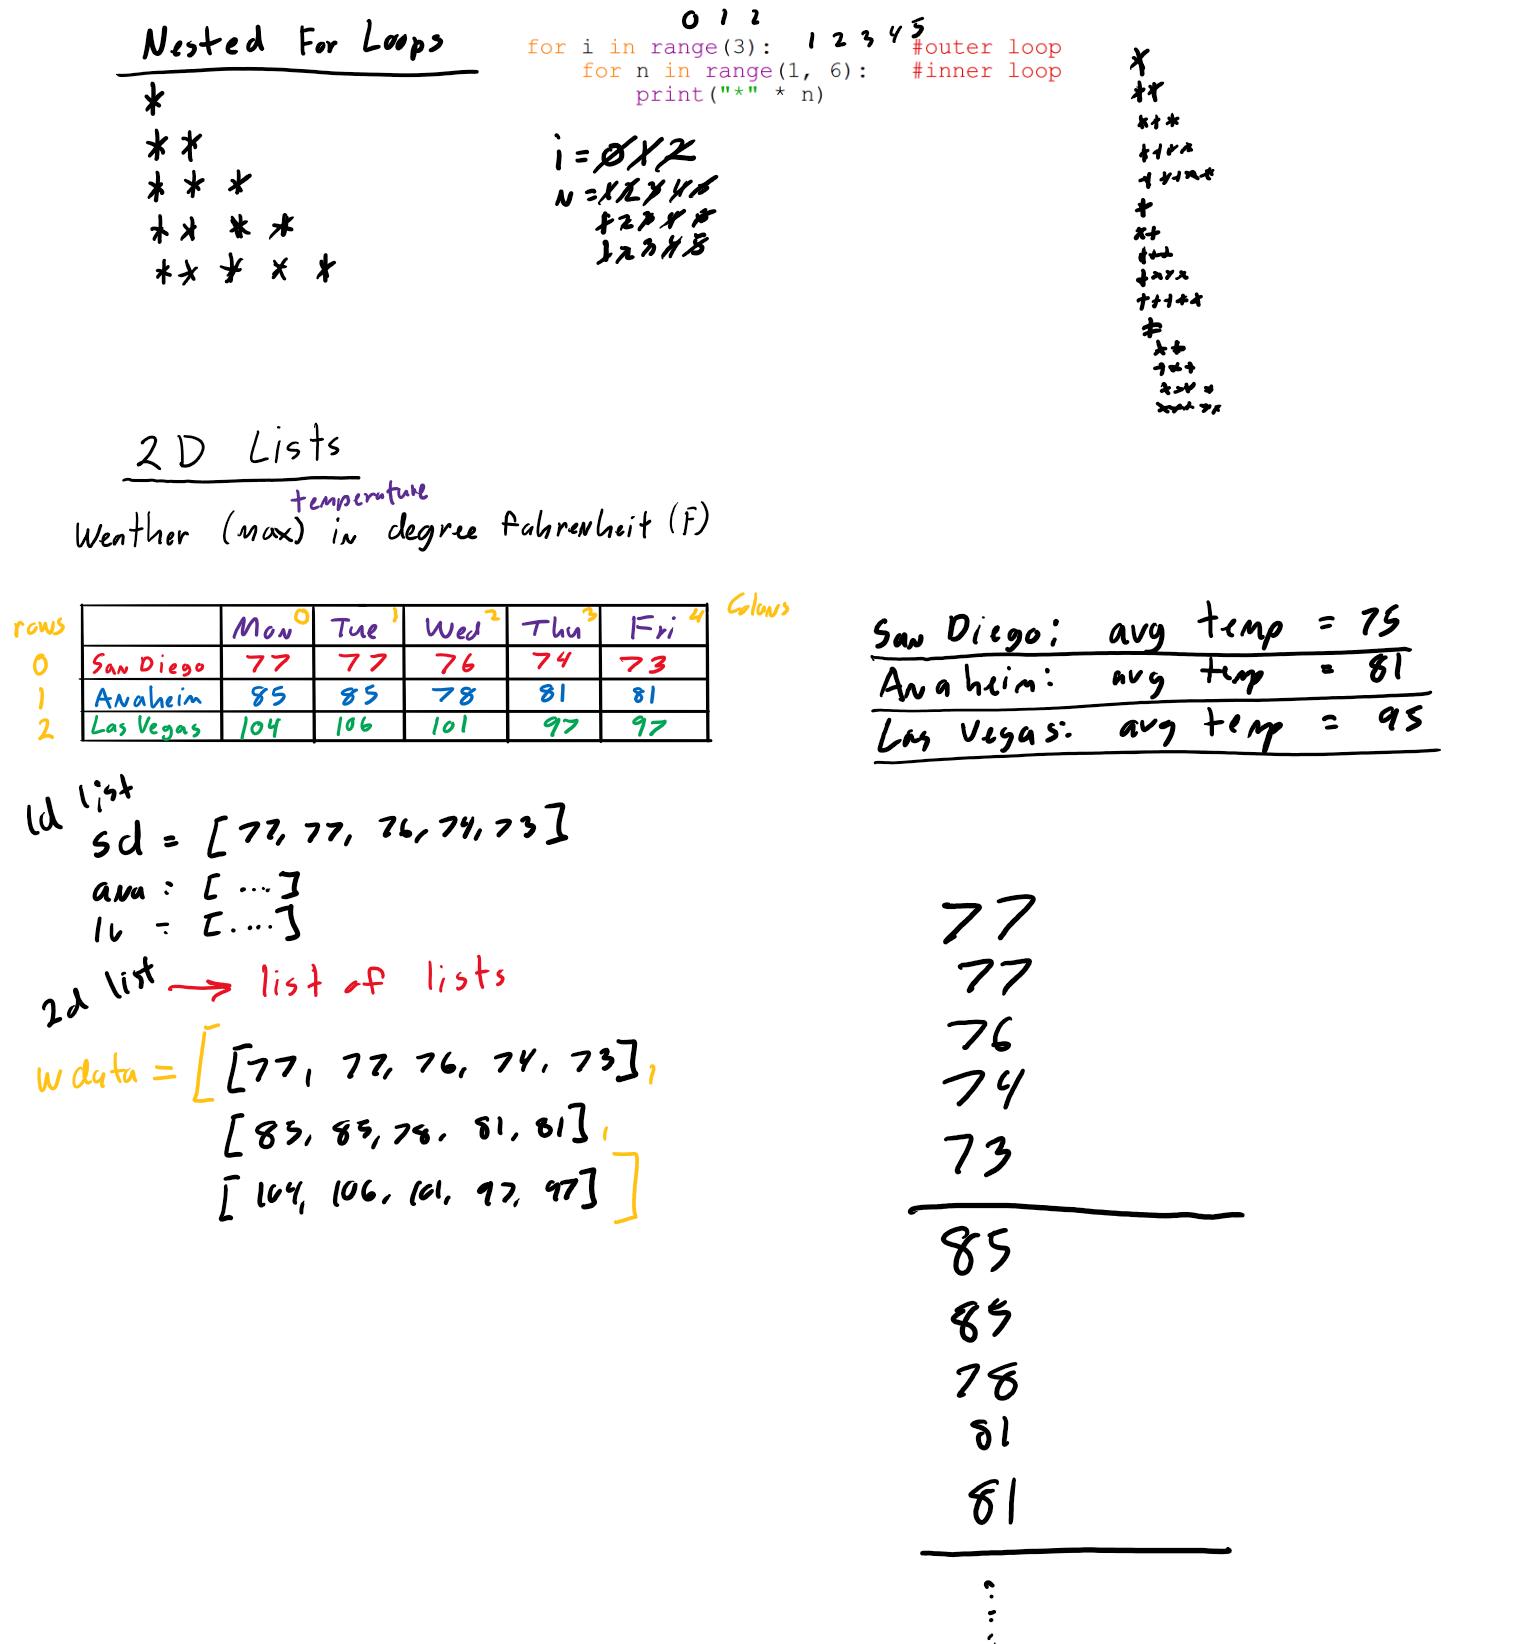 Nested For Loops
*
* *
* * *
* * * *
* * * * *
0 1 2
for i in range(3): #outer loop
1 2 3 4 5
for n in range(1, 6): #inner loop
print("*" * n)
i = 0 1 2
N = 1 2 3 4 5
1 2 3 4 5
1 2 3 4 5
*
**
***
****
*****
*
**
***
****
*****
*
**
***
****
*****
2D Lists
temperature
Weather (max) in degree fahrenheit (F)
rows Mon 0 Tue 1 Wed 2 Thu 3 Fri 4
0 San Diego 77 77 76 74 73
1 Anaheim 85 85 78 81 81
2 Las Vegas 104 106 101 97 97
San Diego: avg temp = 75
Anaheim: avg temp = 81
Las Vegas: avg temp = 95
1d list
sd = [77, 77, 76, 74, 73]
ana = [ ....]
lv = [....]
2d list → list of lists
wdata = [[77, 77, 76, 74, 73],
[85, 85, 78, 81, 81],
[104, 106, 101, 97, 97]]
77
77
76
74
73
85
85
78
81
81